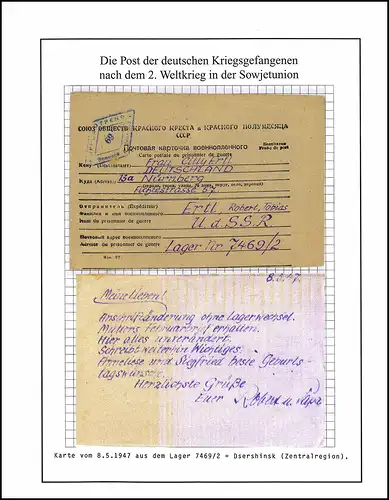 Die Post der deutschen Kriegsgefangenen
nach dem 2. Weltkrieg in der Sowjetunion
СОЮЗ ОБЩЕСТВ КРАСНОГО КРЕСТА и КРАСНОГО ПОЛУМЕСЯЦА
СССР
Почтовая карточка военнопленного
Carte postale du prisonnier de guerre
Кому (Destinataire) Frau
DEUTSCHLAND
Куда (Adresse) 13a Nürnberg
Отправитель (Expéditeur)
Фамилия и имя военнопленного Ertl, Robert, Tobias
Nom du prisonnier de guerre U.d.S.S.R.
Почтовый адрес военнопленного
Adresse du prisonnier de guerre Lager Nr 7469/2
8.5.47.
Meine Lieben!
Anschriftänderung ohne Lagerwechsel.
Mutters Februarbrief erhalten.
Hier alles unverändert.
Schreibt weiterhin Richtiges.
Anneliese und Siegfried beste Geburts-
tagswünsche.
Herzlichste Grüße
Euer Robert u.
Karte vom 8.5.1947 aus dem Lager 7469/2 = Dsershinsk (Zentralregion).